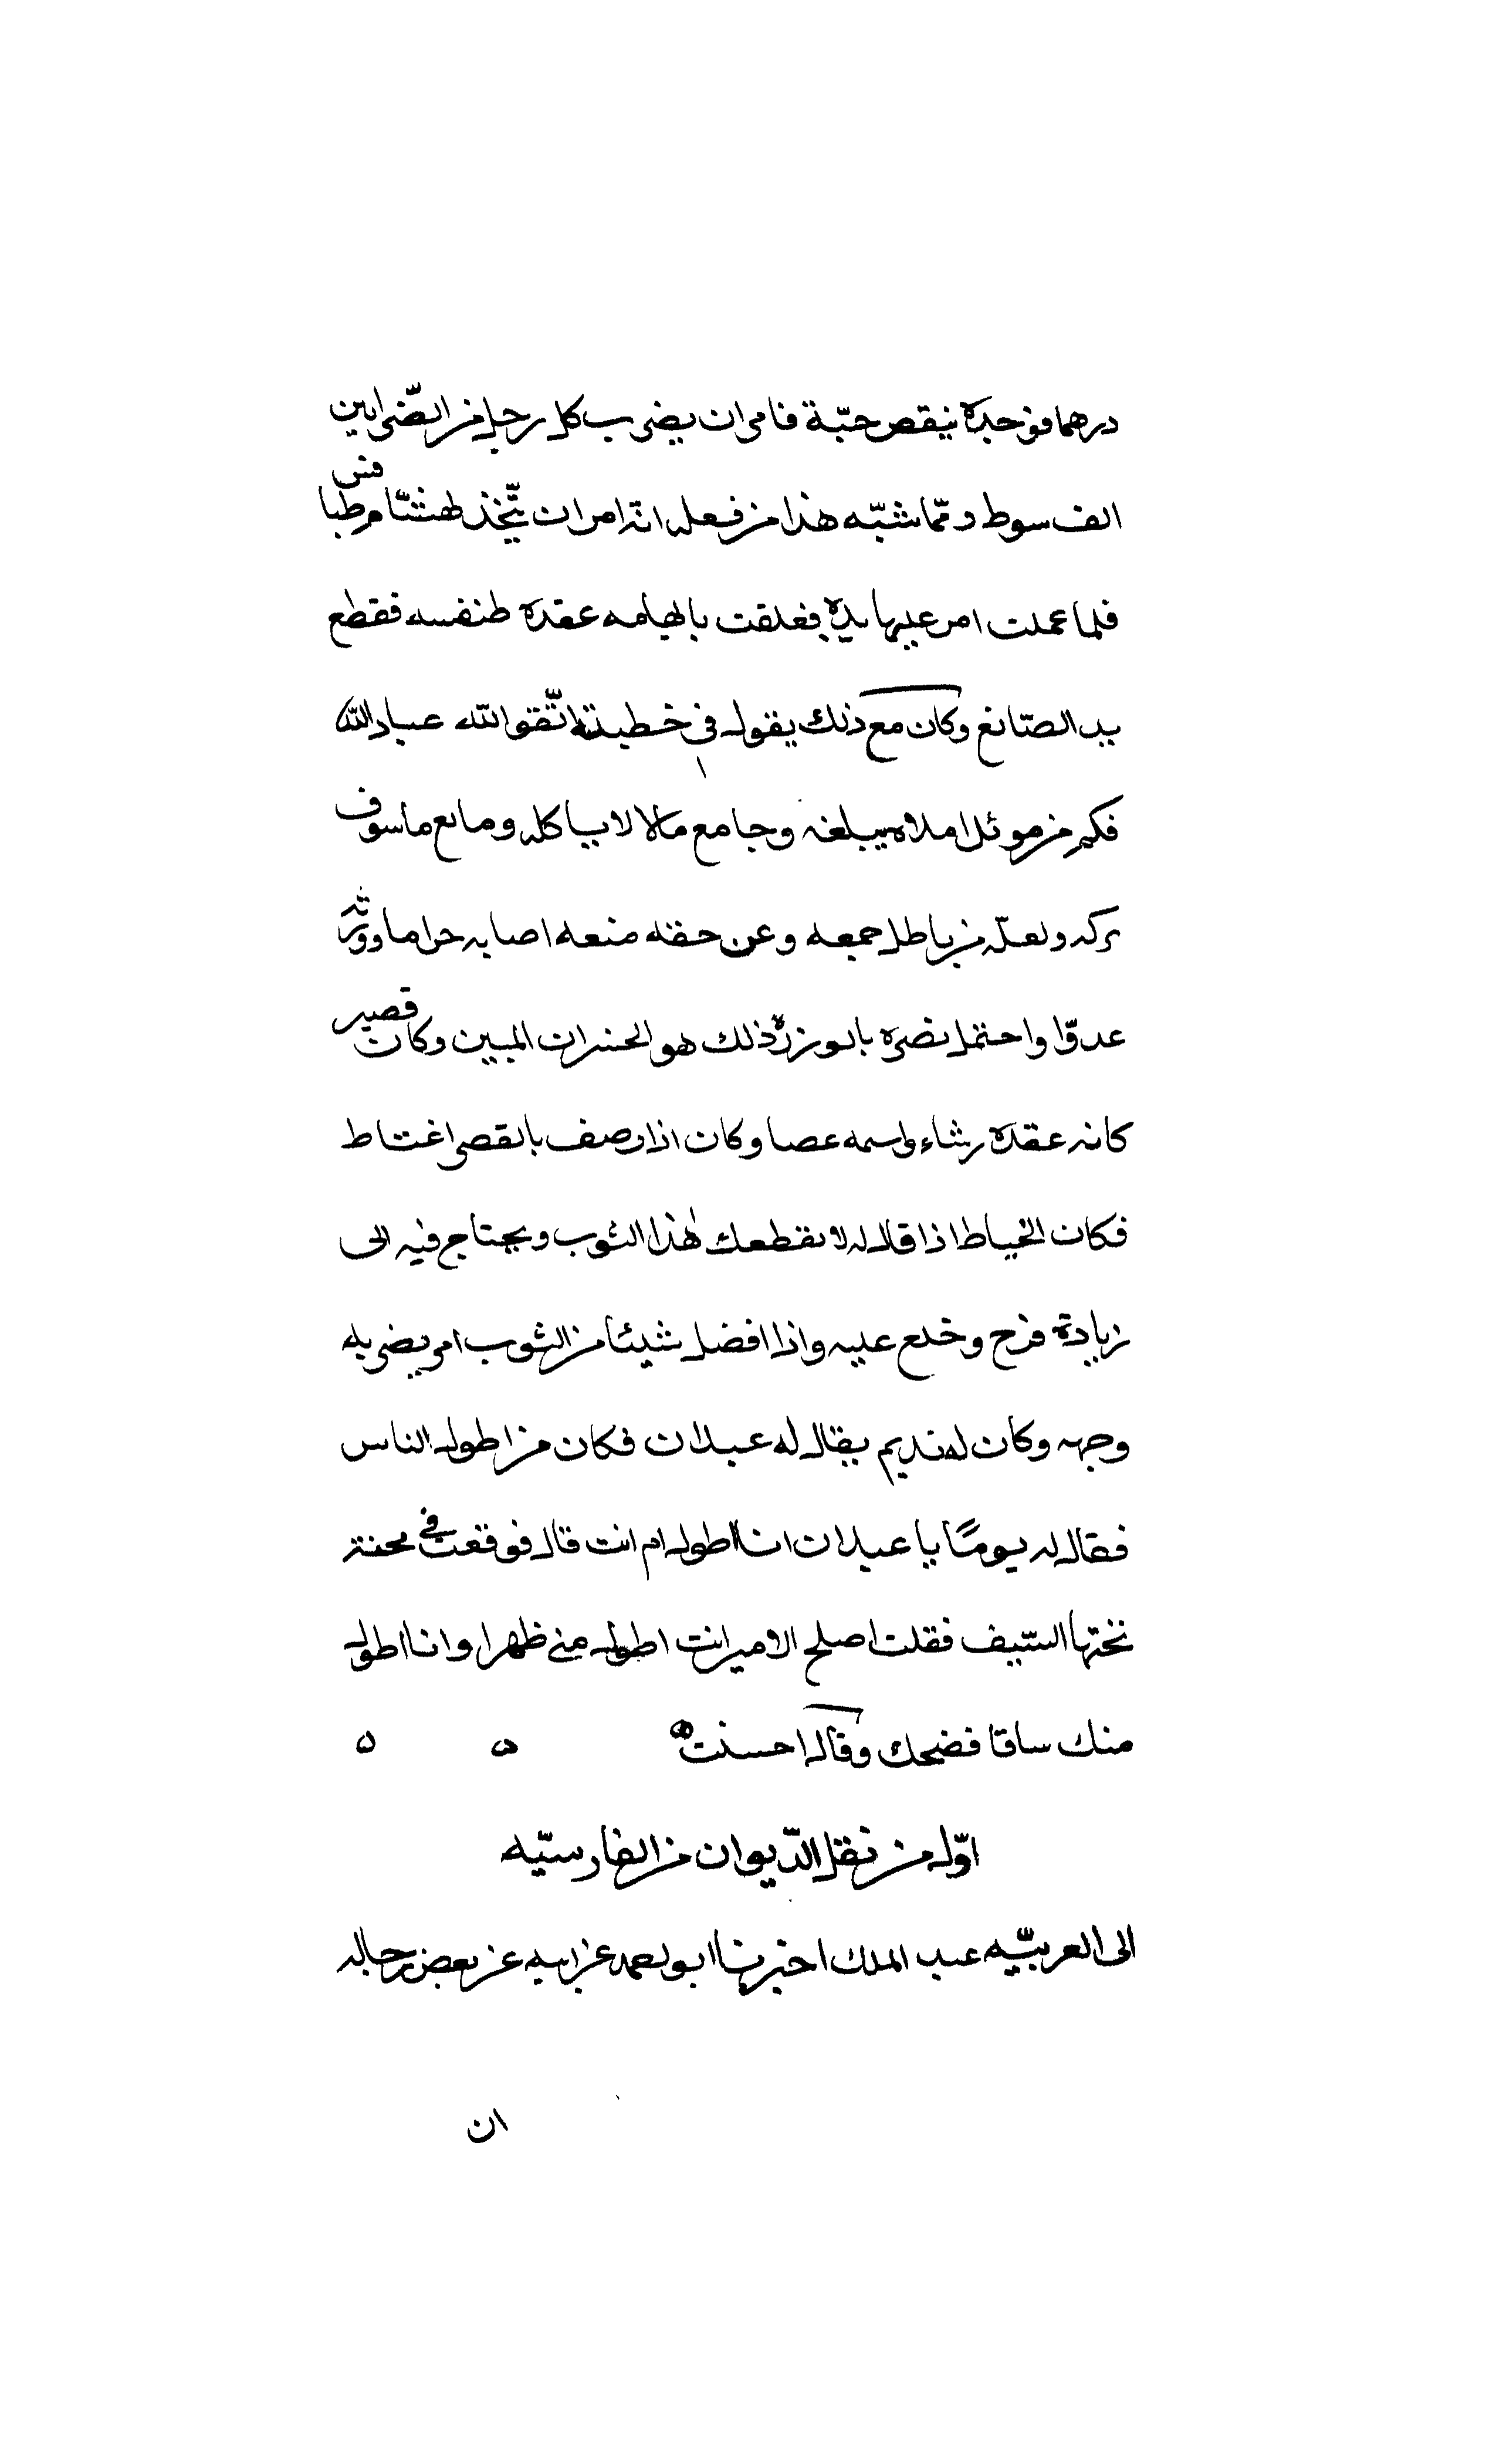 درهما فوجده ينقص حبّة فامر ان يضرب كل رجل من الضّرابين
الف سوط وممّا شبّه هذا من فعله انّه امر ان يتّخذ لهشام طنافس
فلما عملت امر عليها يده فعلقت بابهامه عقده طنفسه فقطع
يد الصّانع وكان مع ذلك يقول في خطبته اتّقوا الله عباد الله
فكم من موئل املا لا يبلغه وجامع مالا لا ياكله ومانع ما سوف
يتركه ولعلّه من باطل جمعه وعن حقه منعه اصابه حراما وورثه
عدوّا واحتمل اصره بالوزره ذلك هو الخسران المبين وكان قصير
كانه عقده رشاء واسمه عصا وكان اذا وصف بالقصر اغتاظ
فكان الخياط اذا قال له لا يقطعك هذا الثوب ويحتاج فيه الى
زيادة فرح وخلع عليه واذا افضل شيئا من الثوب امر بضرب
وجهه وكان له نديم يقال له عيلان فكان من اطول الناس
فقال له يومًا يا عيلان انا اطول ام انت قال فوقعت في محنة
تحتها السّيف فقلت اصلح الامير انت اطول مني ظهرا وانا اطول
منك ساقا فضحك وقال احسنت ه ه ه
اوّل من نقل الدّيوان من الفارسيّه
الى العربيّه عبد الملك اخبرنا ابو احمد عن ابيه عن بعض رجاله
ان